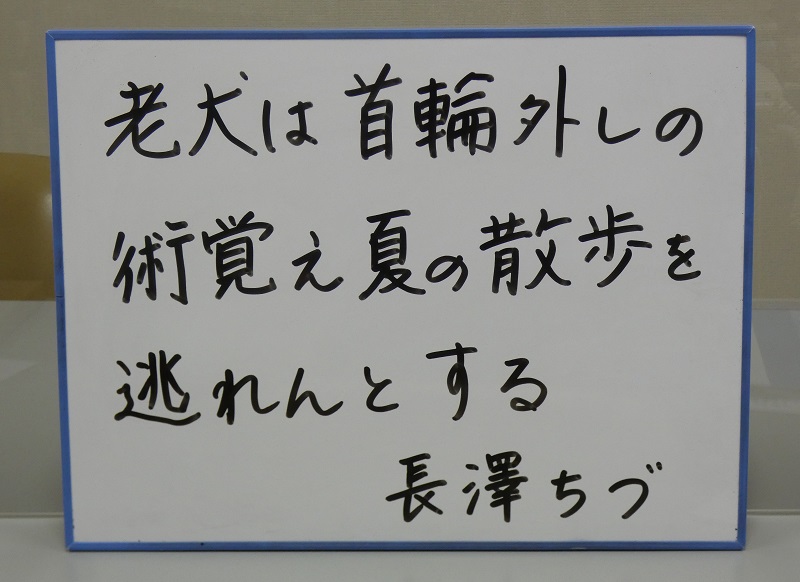 老犬は首輪外しの
術覚え夏の散歩を
逃れんとする
長澤ちづ